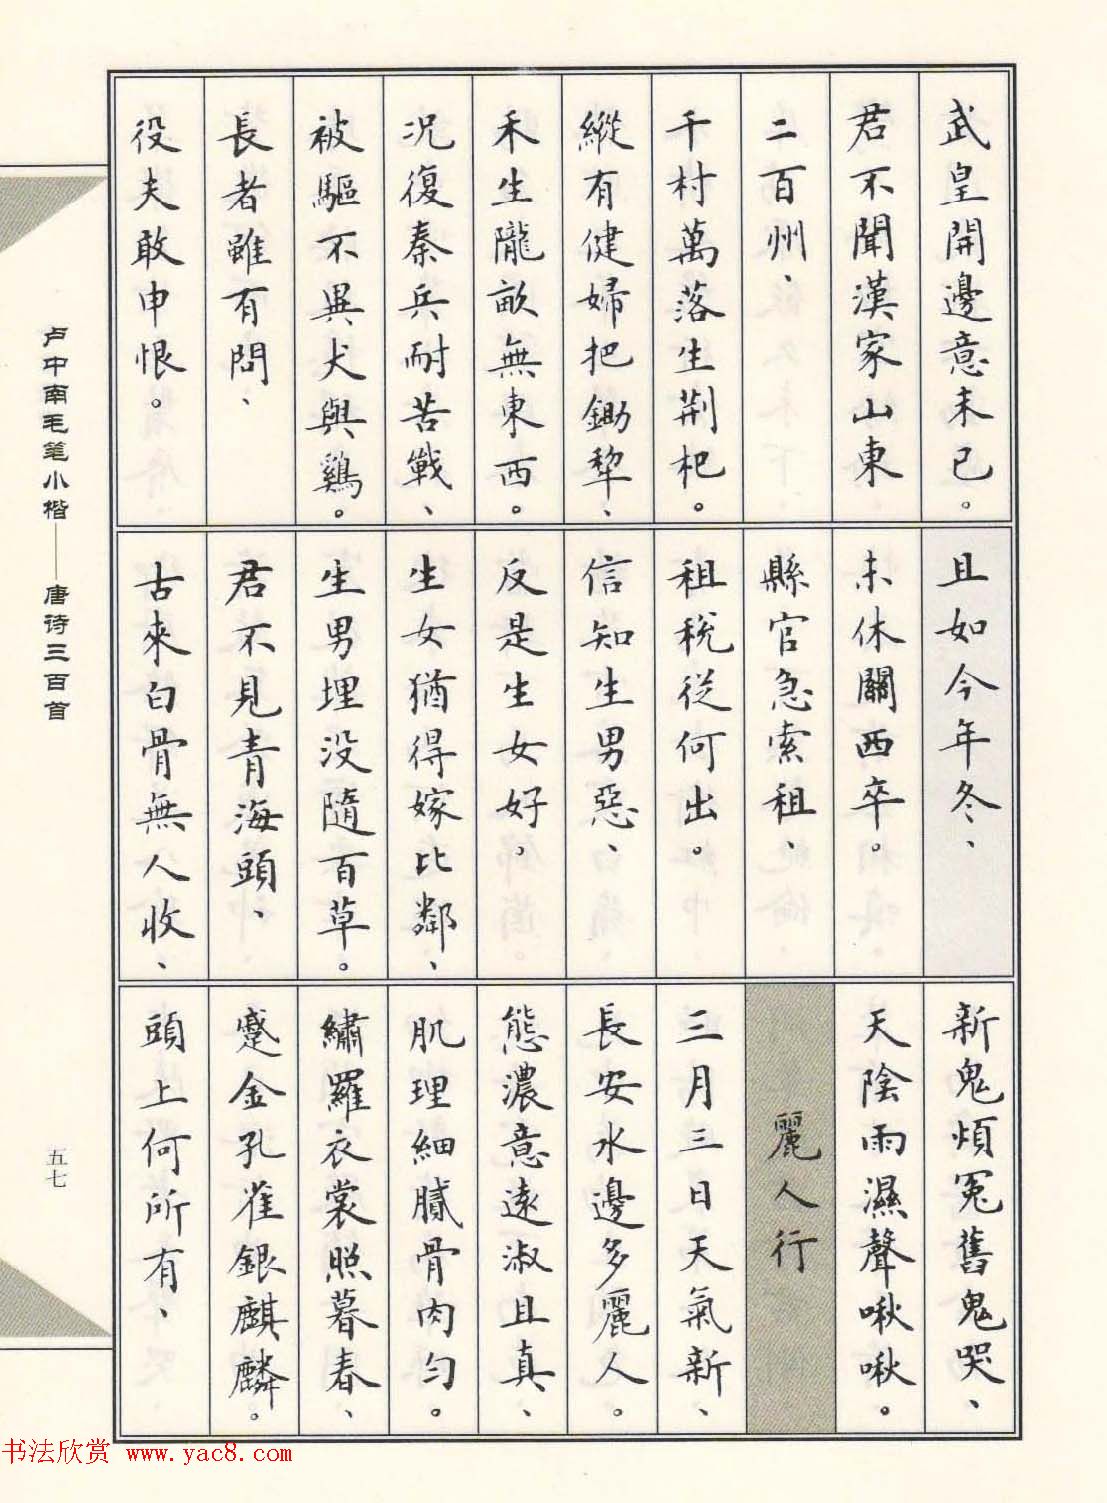 武皇開邊意未已。
君不聞漢家山東
二百州、
千村萬落生荆杞。
縱有健婦把鋤犂、
禾生隴畝無東西。
况復秦兵耐苦戰、
被驅不異犬與鷄。
長者雖有問、
役夫敢申恨。
且如今年冬、
未休關西卒。
縣官急索租、
租税從何出。
信知生男惡、
反是生女好。
生女猶得嫁比鄰、
生男埋没隨百草。
君不見青海頭、
古來白骨無人收、
新鬼煩冤舊鬼哭、
天陰雨濕聲啾啾。
麗人行
三月三日天氣新、
長安水邊多麗人。
態濃意遠淑且真、
肌理細膩骨肉匀。
繡羅衣裳照暮春、
蹙金孔雀銀麒麟。
頭上何所有、
卢中南毛笔小楷——唐诗三百首
五七
书法欣赏 www.yac8.com